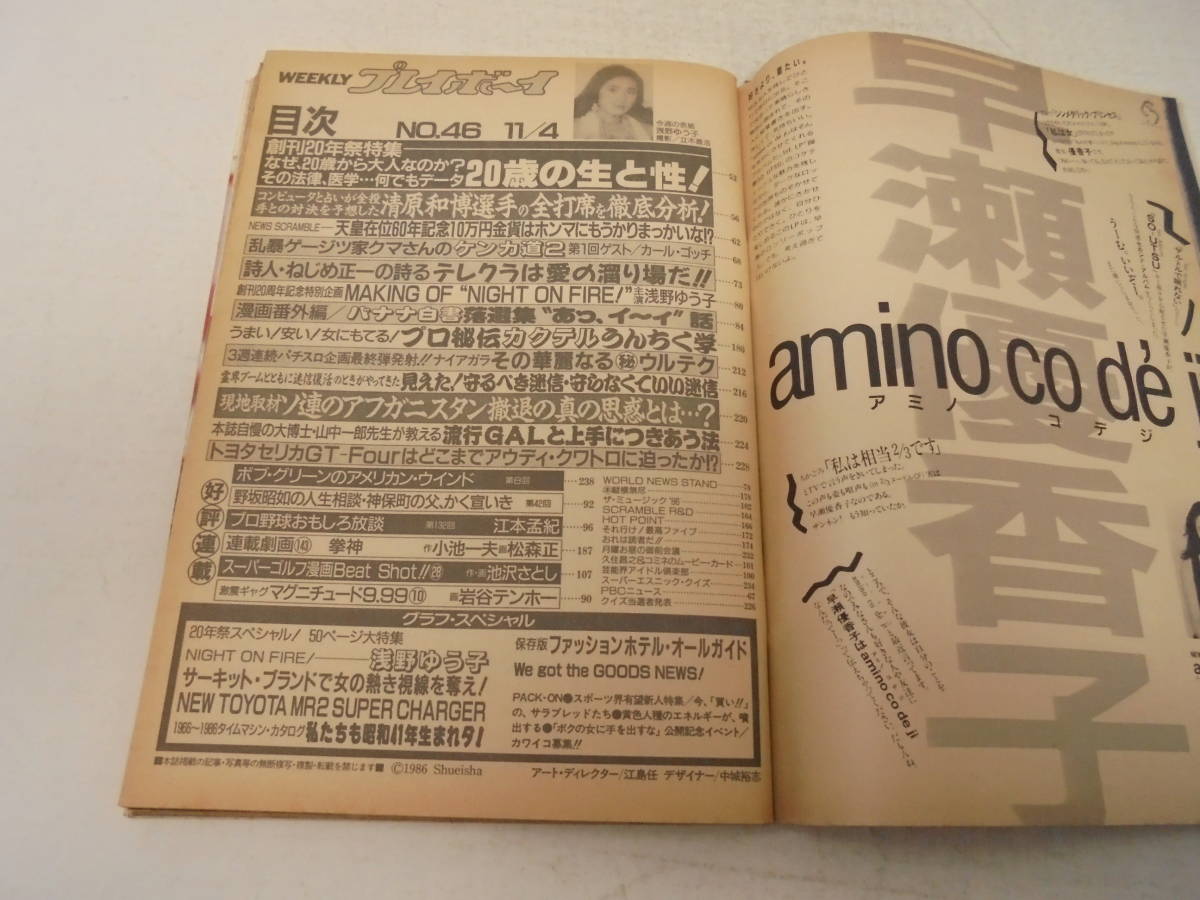 WEEKLY プレイボーイ
今週の表紙
浅野ゆう子
目次
NO.46 11/4
創刊20年祭特集
なぜ、20歳から大人なのか?
その法律、医学…何でもデータ
20歳の生と性!
52
コンピュータと占いが全投
手との対決を予想した
清原和博選手の全打席を徹底分析!
56
NEWS SCRAMBLE─天皇在位60年記念10万円金貨はホンマにもうかりまっかいな!?
62
乱暴ゲージツ家クマさんのケンカ道2 第1回ゲスト/カール・ゴッチ
68
詩人・ねじめ正一の詩るテレクラは愛の溜り場だ!!
73
創刊20周年記念特別企画 MAKING OF “NIGHT ON FIRE!” 主演 浅野ゆう子
80
漫画番外編/バナナ白書落選集“あっ、イ〜イ”話
84
うまい!安い!女にもてる!プロ秘伝カクテルうんちく学
180
3週連続パチスロ企画最終弾発射!!ナイアガラ その華麗なる㊙ウルテク
212
霊界ブームとともに迷信復活のときがやってきた 見えた!守るべき迷信・守らなくていい迷信
216
現地取材 ソ連のアフガニスタン撤退の真の思惑とは…?
220
本誌自慢の大博士・山中一郎先生が教える 流行GALと上手につきあう法
224
トヨタセリカGT-Fourはどこまでアウディ・クワトロに迫ったか!?
228
好評連載
ボブ・グリーンのアメリカン・ウインド 第6回
238
野坂昭如の人生相談・神保町の父、かく宣いき 第42回
92
プロ野球おもしろ放談 第132回 江本孟紀
96
連載劇画(143) 拳神 作 小池一夫 画 松森正
187
スーパーゴルフ漫画Beat Shot!!(28) 作・画 池沢さとし
107
激震ギャグ マグニチュード9.99⑩ 画 岩谷テンホー
90
WORLD NEWS STAND
78
縦横無尽
178
ザ・ミュージック'86
162
SCRAMBLE R&D
164
HOT POINT
166
それ行け!最高ファイブ
172
おれは読者だ!!
174
月曜お昼の御前会議
232
久住昌之&コミネのムービーカード
161
芸能界アイドル倶楽部
190
スーパーエスニック・クイズ
234
PBCニュース
67
クイズ当選者発表
226
グラフ・スペシャル
20年祭スペシャル! 50ページ大特集
NIGHT ON FIRE!──浅野ゆう子
サーキット・ブランドで女の熱き視線を奪え!
NEW TOYOTA MR2 SUPER CHARGER
1966〜1986タイムマシン・カタログ 私たちも昭和41年生まれタ!
保存版 ファッションホテル・オールガイド
We got the GOODS NEWS!
PACK-ON●スポーツ界有望新人特集/今、「買い!!」
の、サラブレッドたち●黄色人種のエネルギーが、噴
出する●「ボクの女に手を出すな」公開記念イベント/
カワイコ募集!!
■本誌掲載の記事・写真等の無断複写・複製・転載を禁じます■ ©1986 Shueisha
アート・ディレクター/江島任 デザイナー/中城裕志
早瀬優香子
amino co dé
アミノ コデジ
「私は相当2/3です」
TVで言う声をきいてしまった。
早瀬優香子なのである。
ザンネン! もう知っていたか。
早瀬優香子はamino co de ji